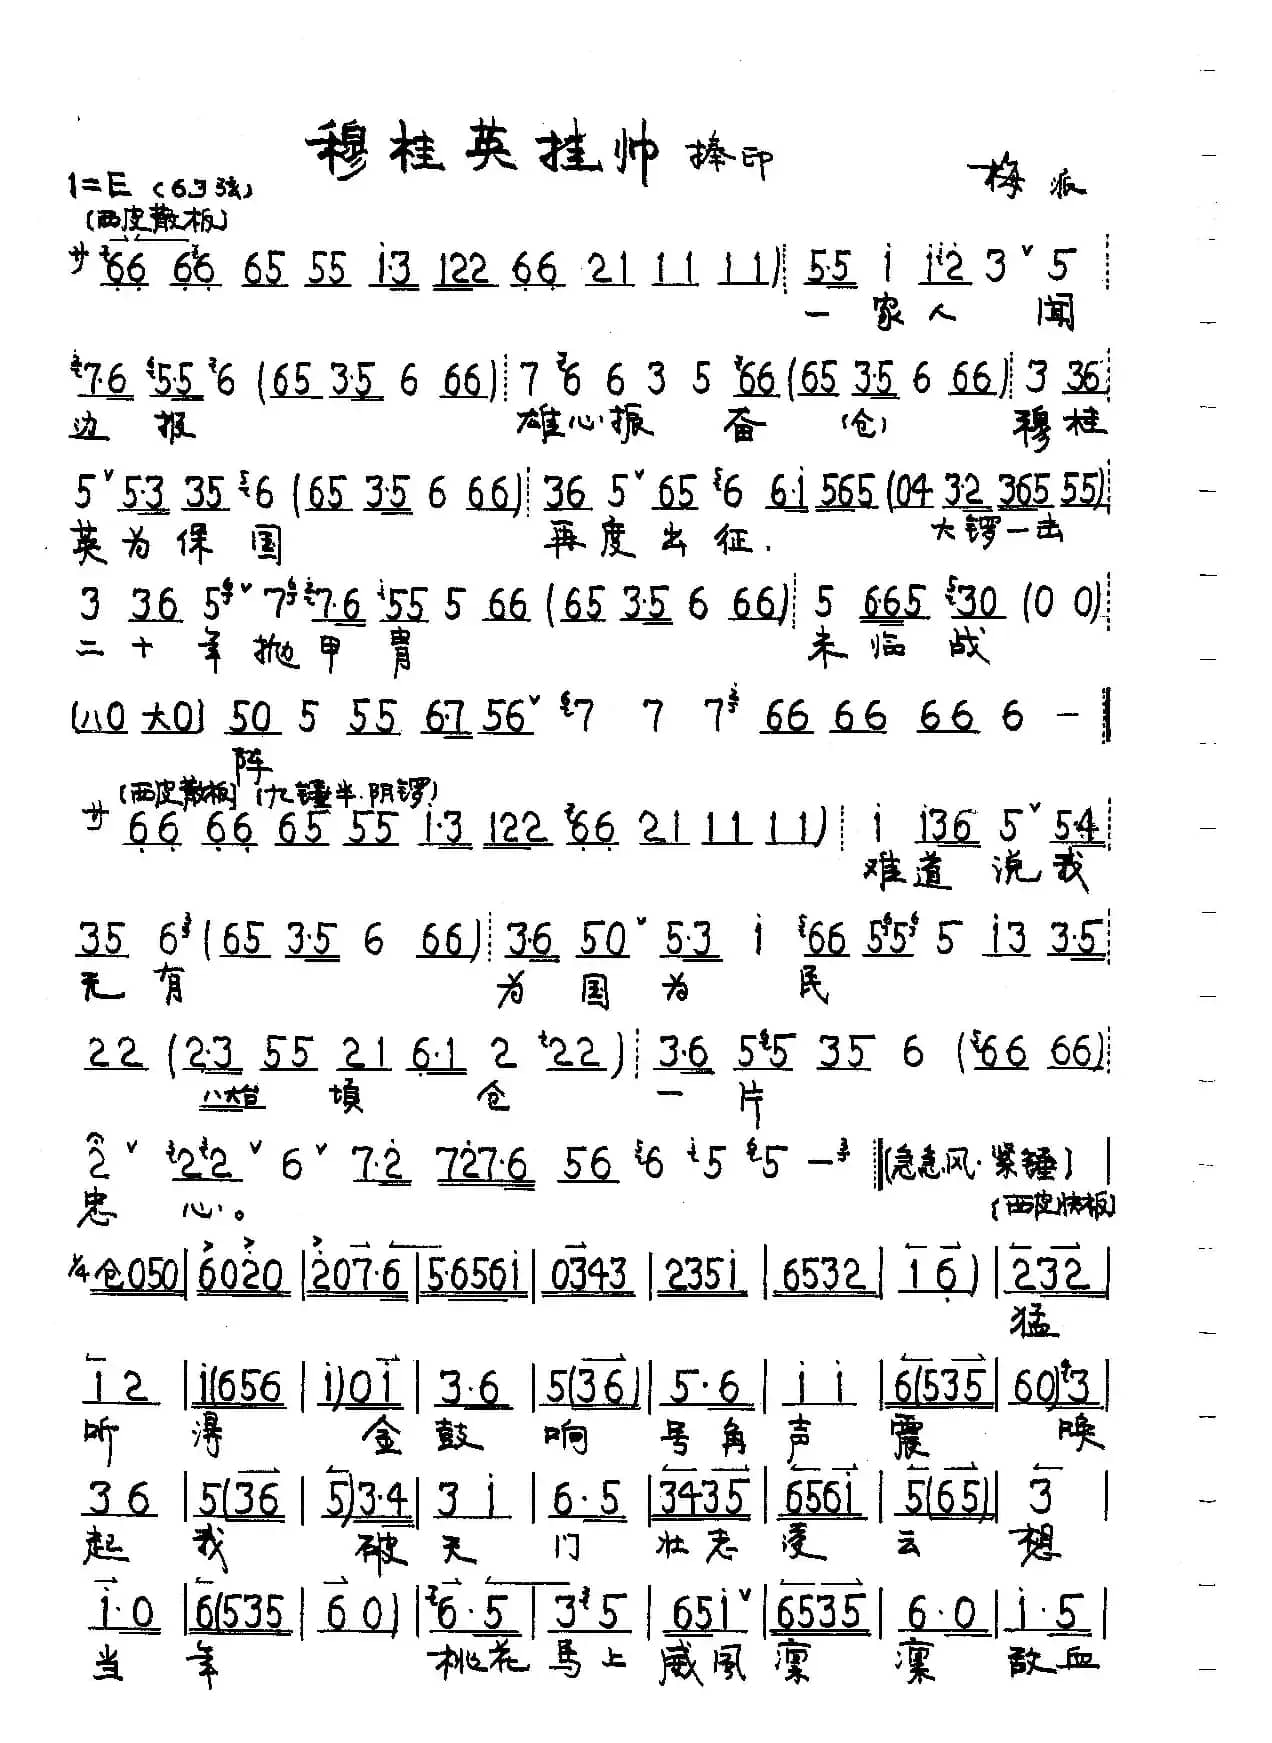 穆桂英挂帅 捧印
梅派
1=E (63弦)
(西皮散板)
サ 66 66 65 55 i·3 122 66 21 11 11) 5·5 i i2 3 ˇ 5
一家人 闻
7·6 5·5 6 (65 3·5 6 66) 7 6 6 3 5 66 (65 3·5 6 66) 3 36
边报 雄心振奋 (仓) 穆桂
5 ˇ 5·3 35 6 (65 3·5 6 66) 36 5 ˇ 65 6 6·i 565 (04 3·2 365 55)
英为保国 再度出征. 大锣一击
3 36 5 ˇ 7 7·6 55 5 66 (65 3·5 6 66) 5 6·65 30 (0 0)
二十年抛甲胄 未临战
(八0 大0) 50 5 55 6·7 56 ˇ 7 7 7 66 66 66 6 —
阵
(西皮散板) (九锤半·阴锣)
サ 66 66 65 55 i·3 122 66 21 11 11) i i36 5 ˇ 5·4
难道说我
35 6 (65 3·5 6 66) 3·6 50 ˇ 5·3 i 66 55 5 i3 3·5
无有 为国为民
22 (2·3 55 21 6·1 2 22) 3·6 55 35 6 (66 66)
八大台 顷 仓 一片
2 ˇ 22 ˇ 6 ˇ 7·2 727·6 56 6 5 5 — (急急风·紧锤)
忠 心。 (西皮快板)
1/4 仓050 | 6020 | 207·6 | 5·656i | 0343 | 235i | 6532 | 1 6) | 232 |
猛
i 2 | i(656 | i)0i | 3·6 | 5(36) | 5·6 | i i | 6(535 | 60)3 |
听得 金鼓响号角声震 唤
36 | 5(36 | 5)3·4 | 3 i | 6·5 | 3435 | 656i | 5(65) | 3 |
起我 破天门壮志凌云想
i·0 | 6(535 | 60) | 6·5 | 35 | 65i ˇ | 6535 | 6·0 | i·5 |
当年 桃花马上威风凛凛敌血